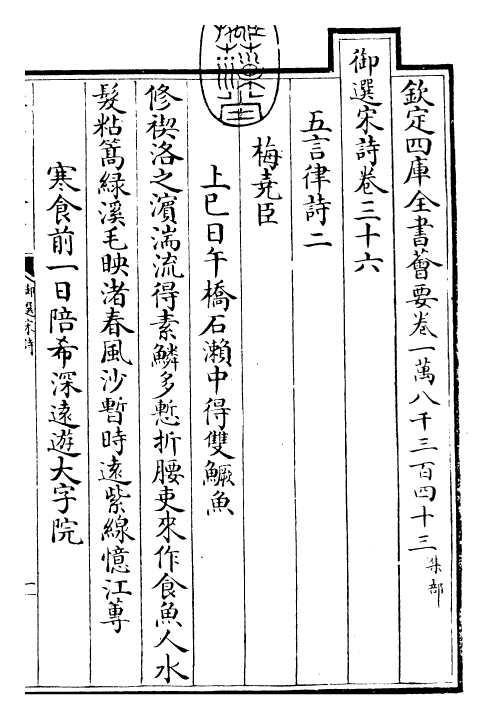 欽定四庫全書薈要卷一萬八千三百四十三 集部
御選宋詩卷三十六
五言律詩二
梅堯臣
上巳日午橋石瀨中得雙鱖魚
修禊洛之濵湍流得素鱗多慙折腰吏來作食魚人水
髮粘篙綠溪毛映渚春風沙暫時逺紫線憶江蓴
寒食前一日陪希深逺遊大字院
御選宋詩
一